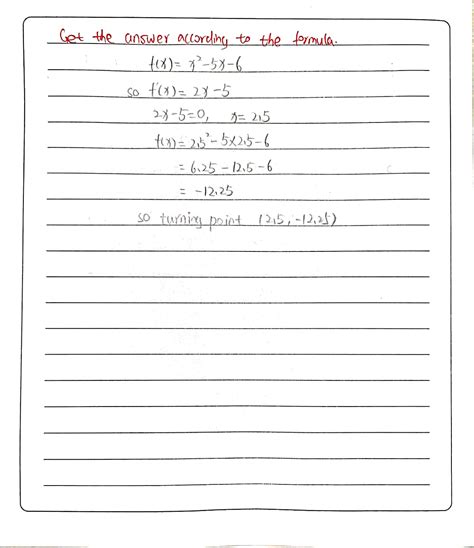 Get the answer according to the formula.
f(x) = x²-5x-6
so f'(x) = 2x-5
2x-5=0, x=2.5
f(x) = 2.5²-5×2.5-6
= 6.25-12.5-6
= -12.25
so turning point (2.5, -12.25)